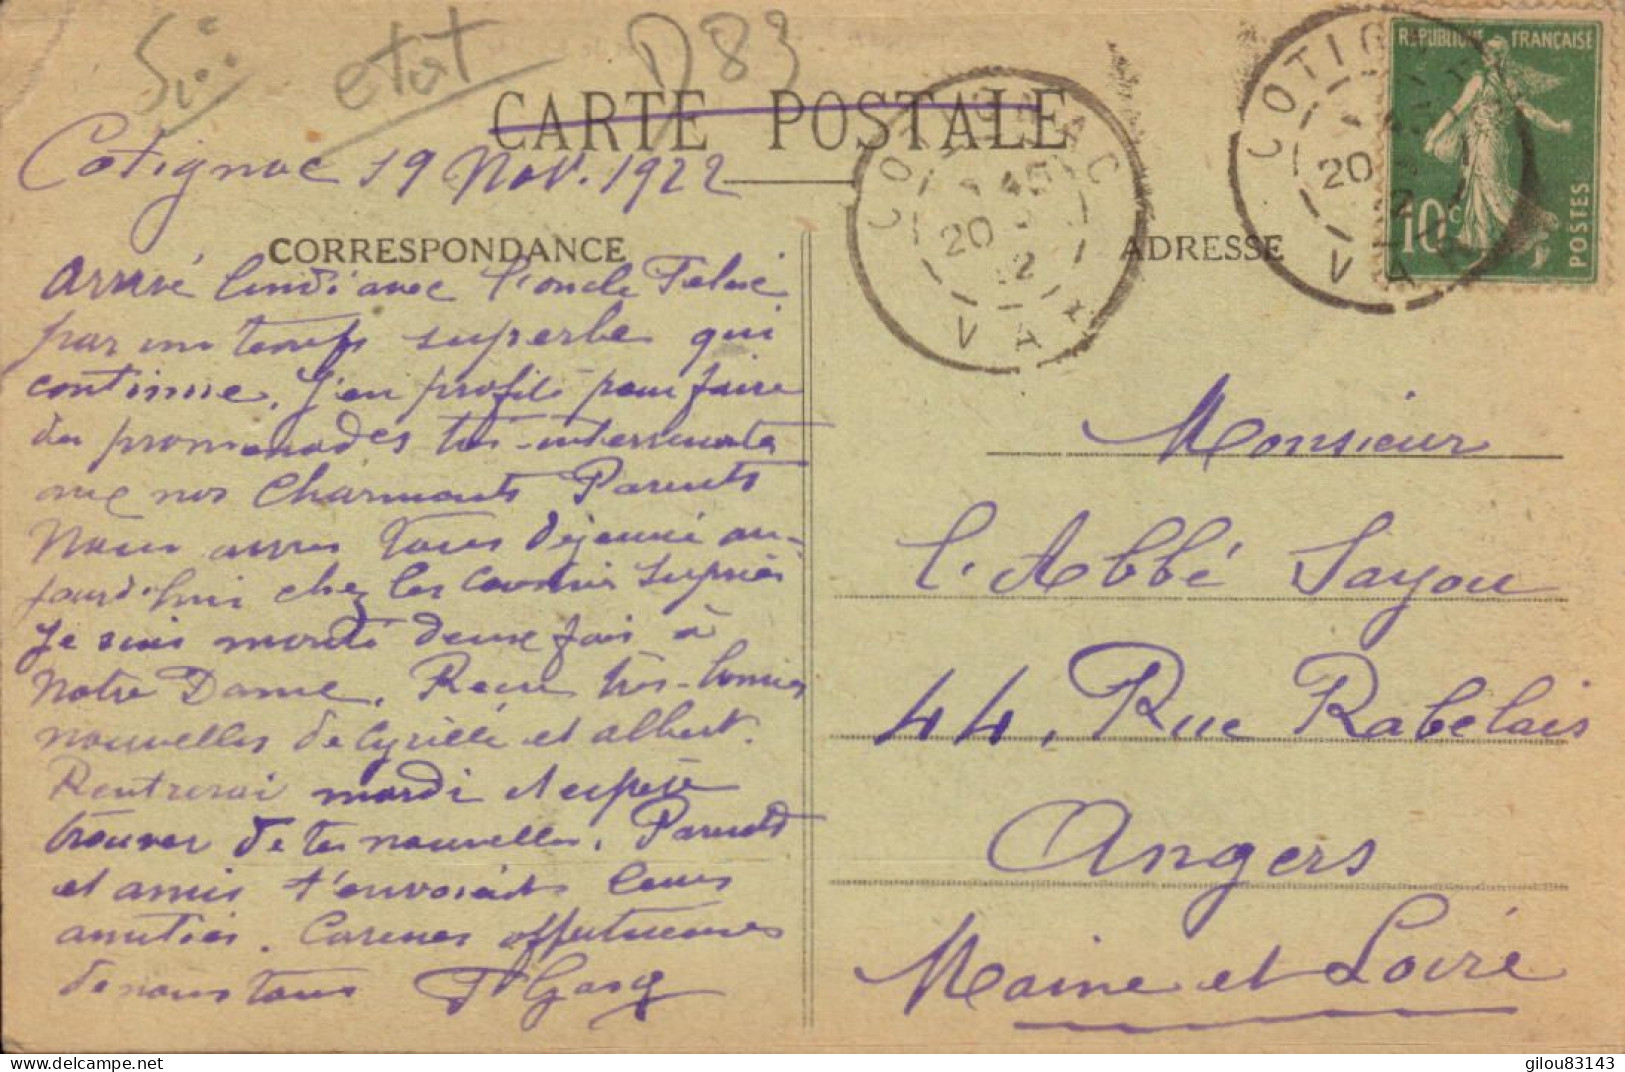 etat
D83
CARTE POSTALE
Cotignac 19 Nov. 1922
COTIGNAC
20
VAR
COTIGNAC
20
VAR
REPUBLIQUE FRANÇAISE
10c
POSTES
CORRESPONDANCE
ADRESSE
Arrivé lundi avec l'oncle Felix
par un temps superbe qui
continue. J'en profite pour faire
des promenades très-interessantes
avec nos Charmants Parents
Nous avons tous déjeuné au-
jourd'hui chez les cousins
Je suis monté deux fois à
Notre Dame. Reçu très-bonnes
nouvelles de Cyrille et Albert.
Rentrerai mardi et espère
trouver de tes nouvelles. Parents
et amis t'envoient leurs
amitiés. Caresses affectueuses
de nous tous
Monsieur
l'Abbé Sayou
44, Rue Rabelais
Angers
Maine et Loire
www.delcampe.net
gilou83143